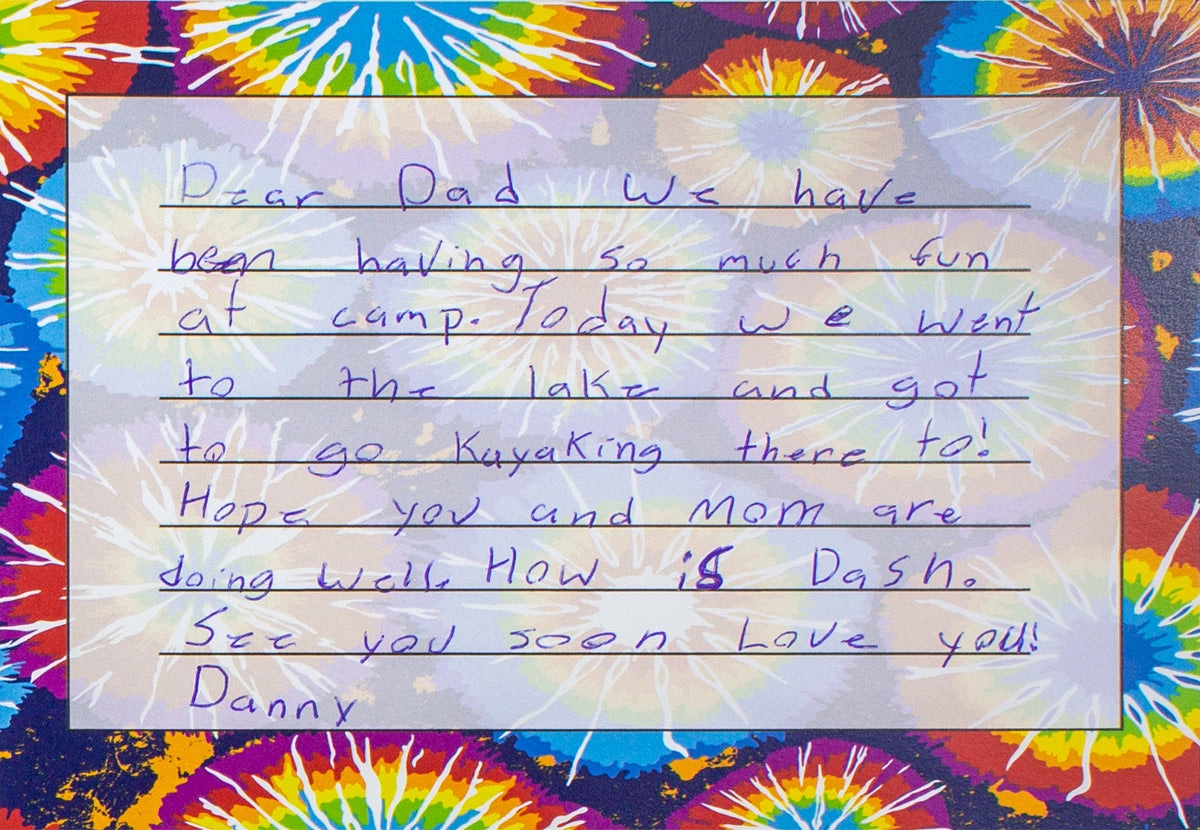 Dear Dad We have
been having so much fun
at camp. Today we went
to the lake and got
to go Kayaking there to!
Hope you and Mom are
doing well. How is Dash.
See you soon Love you!
Danny